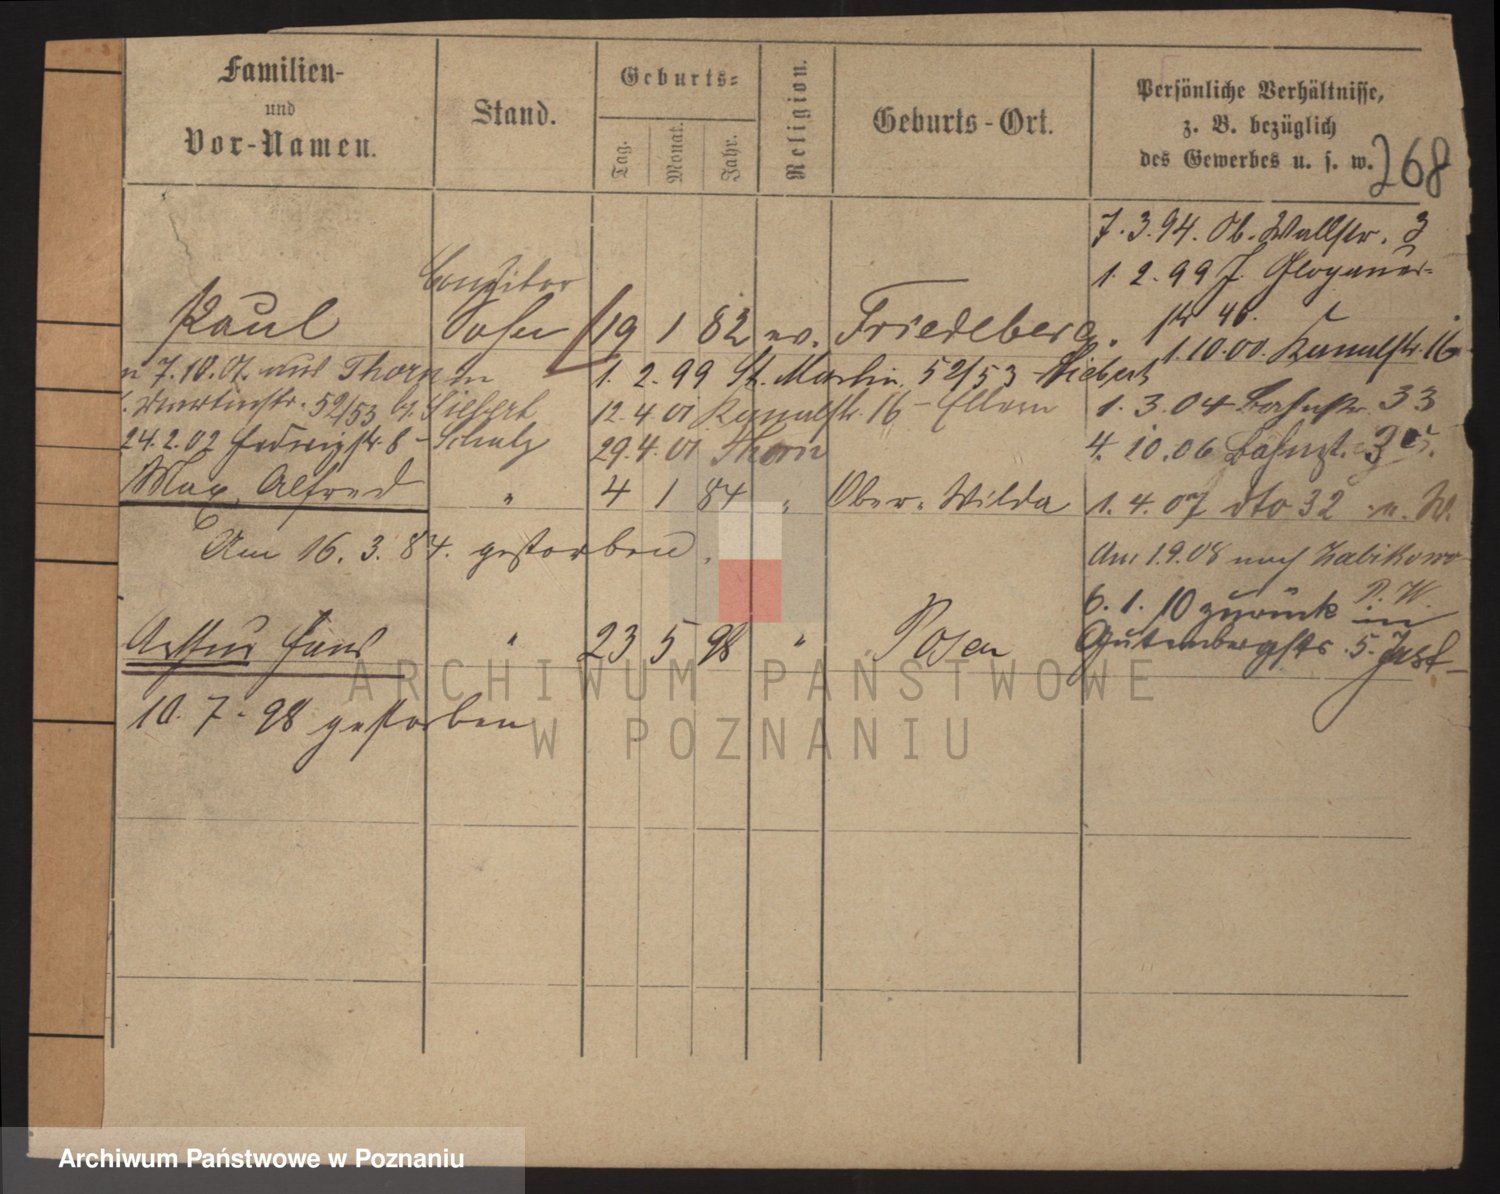 Familien-
und
Vor-Namen.
Stand.
Geburts-
Tag.
Monat.
Jahr.
Religion.
Geburts-Ort.
Persönliche Verhältnisse,
z. B. bezüglich
des Gewerbes u. s. w.
268
7. 3. 94. Ob. Wallstr. 3
1. 2. 99 J. Glogauer-
str 46.
Conditor
Paul Sohn 19 1 82 ev. Friedeberg.
1. 10. 00. Kanalstr. 16
7. 10. 01. aus Thorn in 1. 2. 99 St. Martin 52/53 Siebert
Martinstr. 52/53 Siebert 12. 4. 01 Kanalstr. 16 - Eltern 1. 3. 04 Bahnstr. 33
24. 2. 02 Hedwigstr. 8 - Schulz 29. 4. 01 Thorn 4. 10. 06 Bahnst.
Max Alfred " 4 1 84 " Ober-Wilda 1. 4. 07 dto 32 n. W.
Am 16. 3. 84. gestorben.
Am 1. 9. 08 nach Zabikowo
6. 1. 10 zurück P. W. in
Arthur Hans " 23 5 98 " Posen Gutenbergstr. 5.
10. 7. 98 gestorben
ARCHIWUM PAŃSTWOWE
W POZNANIU
Archiwum Państwowe w Poznaniu